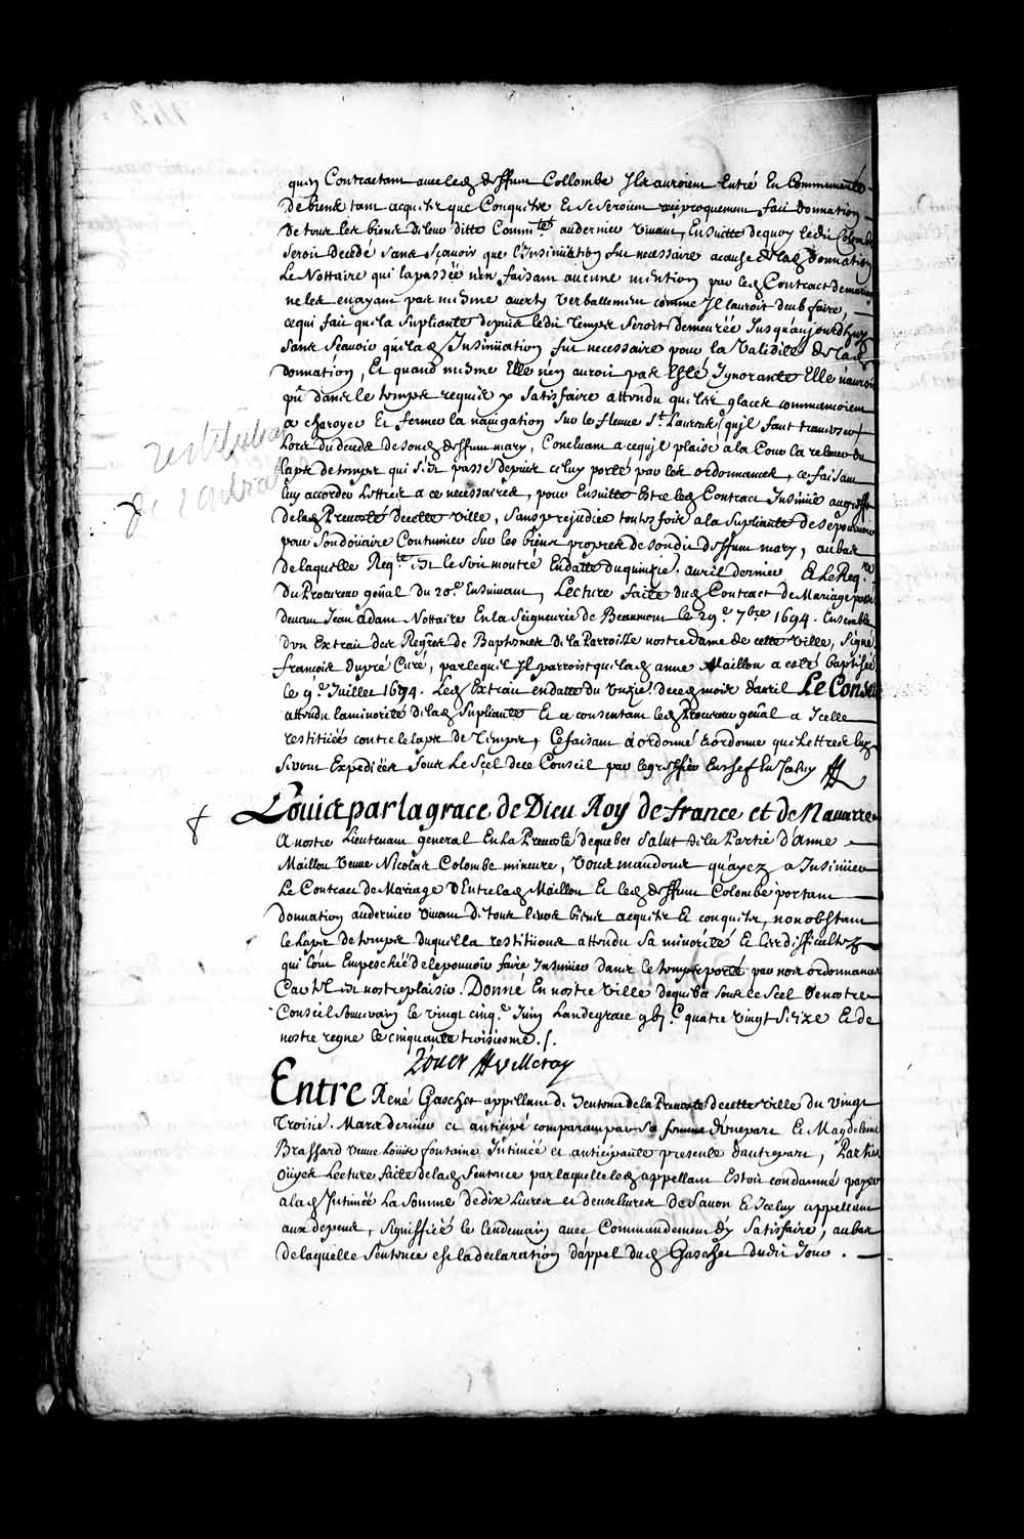 qu'en Contractant avec led deffunt Collombe Ils auroient Entré En Communauté
de biens tant acquits que Conquits Et Se Seroient reciproquement fait donnation
de tous les biens de leur ditte Comm.té au dernier vivant, Ensuitte de quoy ledit Colombe
Seroit Decedé Sans Sçavoir que l'Insinüation fut necessaire a cause de lad donnation
Le Nottaire qui la passée n'en faisant aucune mention par led Contract de mariage
ne les en ayant pas mesme averty verballement comme Il l'auroit deub faire,
ce qui fait que la Supliante depuis ledit temps Seroit demeurée Jusqu'aujourd'huy
Sans Scavoir que lad Insinüation fut necessaire pour la Validité de lad
donnation, Et quand mesme Elle n'en auroit pas Esté Ignorante Elle n'auroit
pû dans le temps requis y Satisfaire attendu que les glaces commancoient
a charoyer Et fermer la navigation Sur le fleuve S.t Laurens qu'il faut traverser
Lors du deceds de Sond deffunt mary, Concluant a ce qu'il plaise a la Cour la relever du
laps de temps qui s'est passé depuis celuy porté par les ordonnances, ce faisant
luy accorder Lettres a ce necessaires, pour Ensuitte Estre led Contract Insinué au greffe
de lad Prevosté de cette Ville, Sans prejudice toutes fois a la Supliante de Se pourvoir
pour Son doüaire Coutumier Sur les biens propres de Sondit deffunt mary, au bas
de laquelle Req.te est le Soit montré En datte du quinz.e avril dernier Et Le Req.re
du Procureur gñal du 20.e Ensuivant, Lecture faite dud Contract de Mariage passé
devant Jean adam Nottaire En la Seigneurie de Beaumont le 29.e 7.bre 1694. Ensemble
d'un Extrait des Regres de Baptesmes de la Parroisse nostre Dame de cette ville, Signé
françois dupré Curé, par lequel Il parroist que lad anne Maillou a esté baptisée
le 9.e Juillet 1674. Led Extrait en datte du unzie. de ce mois d'avril Le Conseil
attendu la minorité de lad Supliante Et ce consentant led Procureur gñal a Icelle
restituée contre le laps de Temps, Ce faisant a ordonné & ordonne que Lettres luy
Seront Expediées Sous Le Seel de ce Conseil par le greffier En chef En Jceluy
restitution
de l'ordonnance
Loüis par la grace de Dieu Roy de france et de Navarre
A nostre Lieutenant general En La Prevosté de quebec Salut de la Partie d'Anne
Maillou veuve Nicolas Colombe mineure, Vous mandons qu'ayez a Insinüer
Le Contract de Mariage d'Entre lad Maillou Et led deffunt Colombe portant
donnation au dernier vivant de tous leurs biens acquits Et conquits, nonobstant
le laps de temps duquel la restituons attendu Sa minorité Et les difficultez
qui l'ont Empeschée de le pouvoir faire Insinüer dans le temps porté par nos ordonnances
Car tel est nostre plaisir. Donné En nostre Ville de quebec Sous le Seel de nostre
Conseil Souverain le vingt cinq.e Juin L'an de grace gbj.c quatre vingt Seize Et de
nostre regne le cinquante troisiesme ./.
Entre René Gaschet appellant de Sentence de la Prevosté de cette ville du vingt
Troisie. Mars dernier et anticipé comparant par Sa femme d'une part Et Magdelaine
Brassard veuve Loüis fontaine Intimée et anticipante presente d'autre part, Parties
Oüyes Lecture faite de lad Sentence par laquelle led appellant Estoit condamné payer
a lad Intimée La Somme de dix Livres et deux livres de Savon Et Iceluy appellant
aux depens, Signiffiée le lendemain avec Commandement d'y Satisfaire, au bas
de laquelle Sentence est la declaration d'appel dud Gaschet dudit Jour .